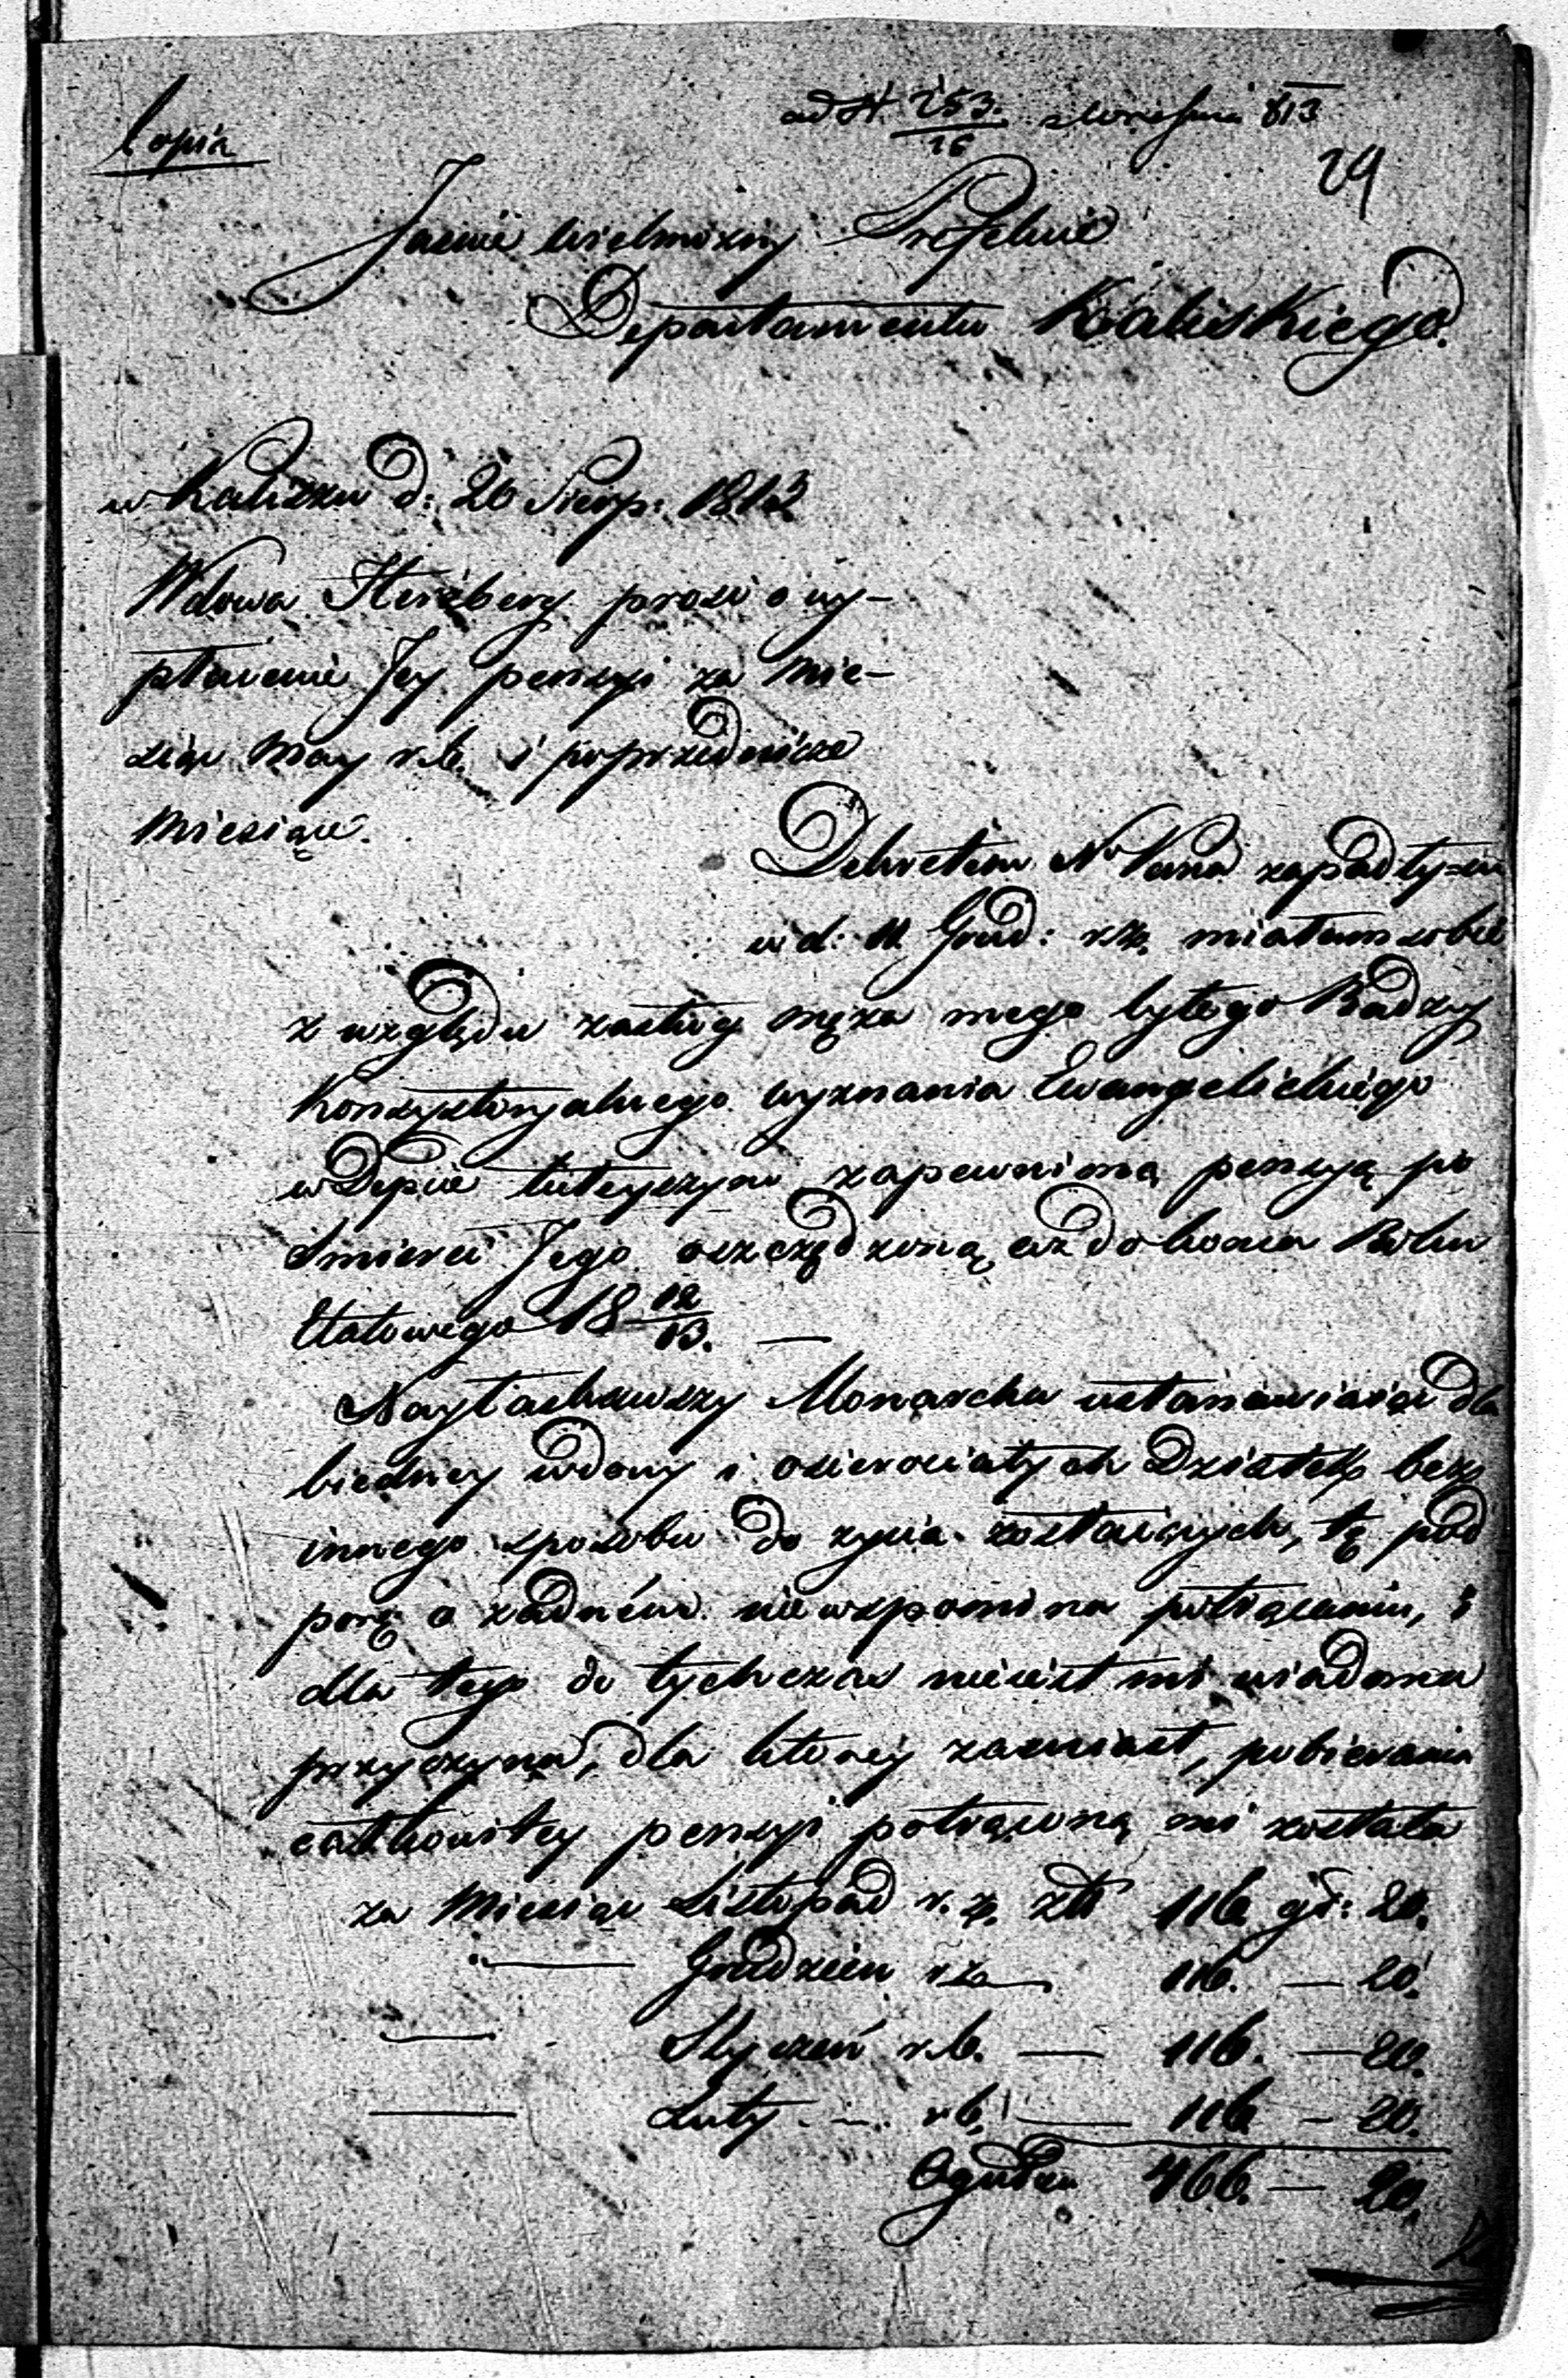 Copia
ad N. 253/16 Września 813
29
Jaśnie Wielmożny Prefekcie
Departamentu Kaliskiego.
w Kaliszu d: 26 Sierp: 1813
Wdowa Herzberg prosi o wy-
płacenie Jey pensyi za Mie-
siąc May r.b. i poprzednicze
Miesiące.
Dekretem N. Pana zapadłym
w d: 11 Grud: r.z. miałam sobie
z względu zasług męża mego byłego Radzcy
Konsystoryalnego wyznania Ewangelickiego
w Depcie tuteyszym zapewnioną pensyą po
śmierci Jego oszczędzoną aż do końca Roku
Etatowego 18 12/13. —
Nayłaskawszy Monarcha ustanawiaiąc dla
biedney wdowy i osierociałych Dziatek bez
innego sposobu do życia zostaiących, tę pod
porę o żadném nie wspomina potrąceniu, i
dla tego do tychczas nieiest mi wiadoma
przyczyna, dla którey zamiast, pobierania
całkowitey pensyi potrąconą mi została
za Miesiąc Listopad r.z. zł 116 gr: 20.
— Grudzień r.z. — 116. — 20.
— Styczeń r.b. — 116. — 20.
— Luty — r.b. — 116 — 20.
Ogułem 466. — 20.